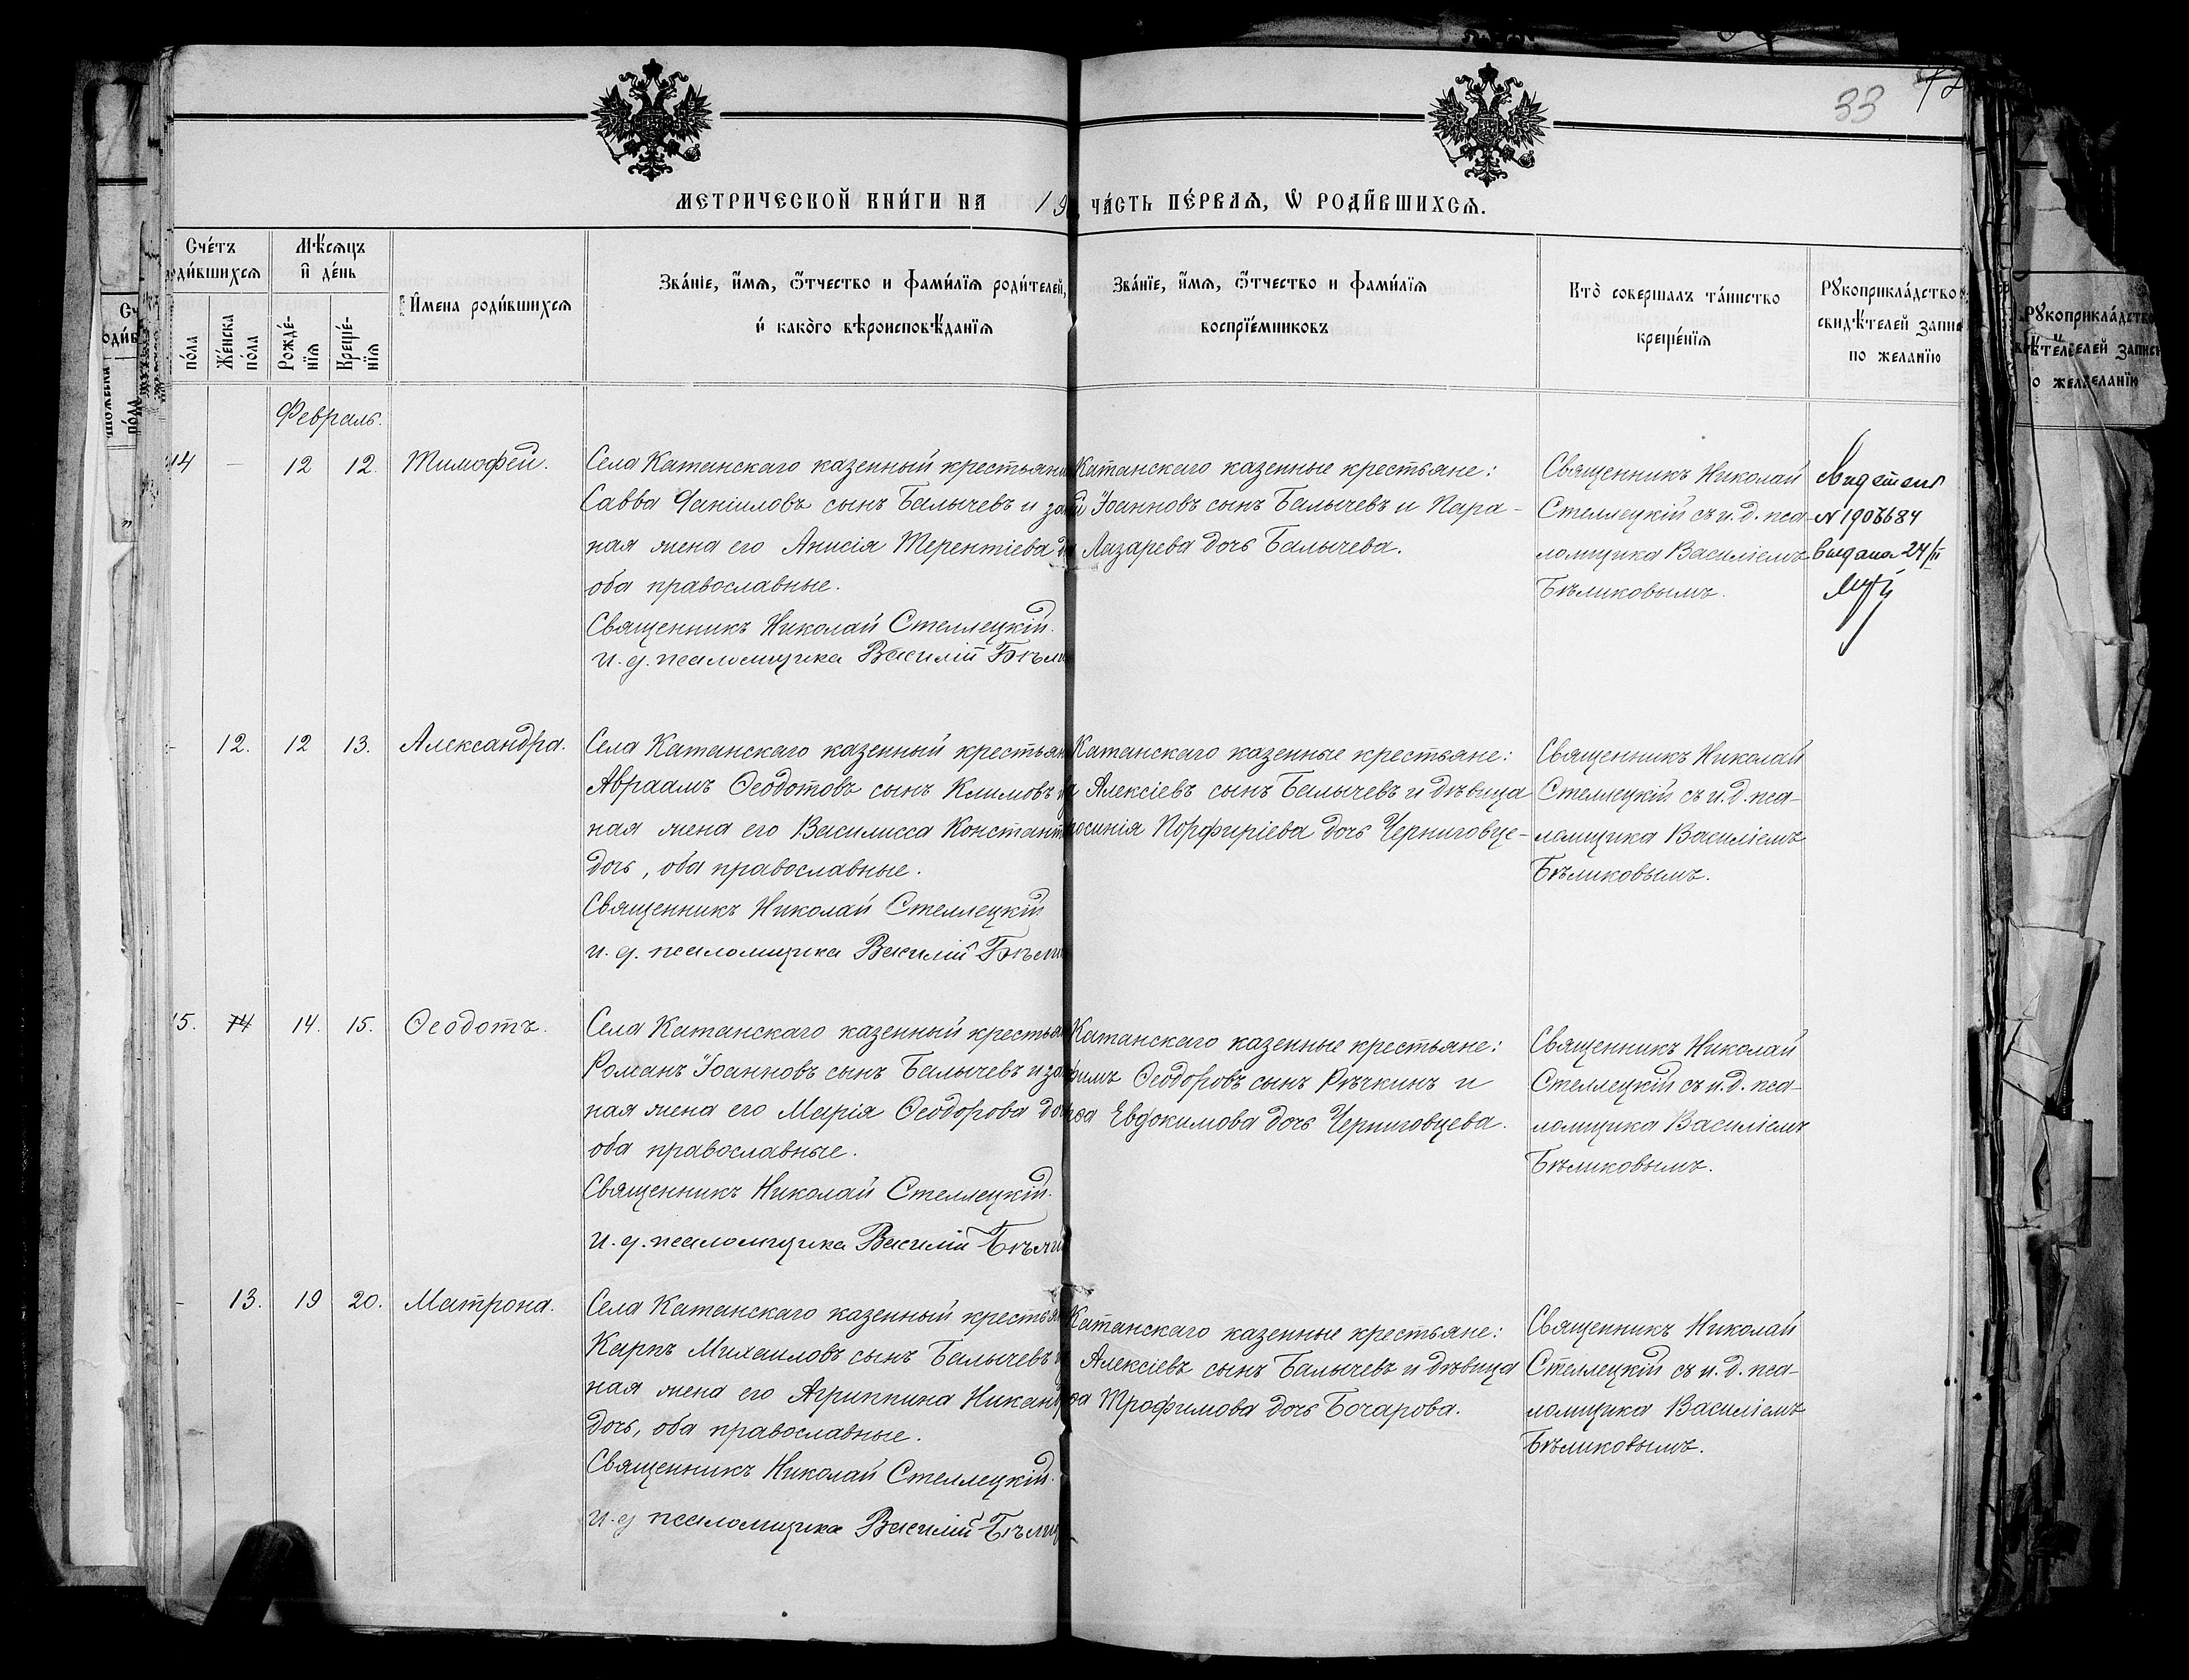 33
МЕТРИЧЕСКОЙ КНИ́ГИ НА 19 ЧА́СТЬ ПЕ́РВАѦ, Ѡ РОДИ́ВШИХСѦ.
Сче́тъ
роди́вшихсѧ
Мѣ́сѧцъ
и де́нь
И́мена роди́вшихсѧ
Зва́нїе, и́мѧ, ѻ́тчество и фами́лїѧ роди́телей,
и́ како́го вѣроисповѣ́данїѧ
Зва́нїе, и́мѧ, ѻ́тчество и фами́лїѧ
воспрїе́мниковъ
Кто̀ соверша́лъ та́инство
креще́нїѧ
Рꙋкоприкла́дство
свидѣ́телей запи
по жела́нїю
по́ла
Же́нска
по́ла
Рожде́-
нїѧ
Креще́-
нїѧ
Февраль.
14 — 12 12. Тимофей.
Села Катанскаго казенный крестьяни
Савва Данiиловъ сынъ Балычевъ и зак
ная жена его Анисія Терентіева до
оба православные.
Священникъ Николай Стеллецкій.
и. д. псаломщика Василій Бѣли
Катанскаго казенные крестьяне:
Іоанновъ сынъ Балычевъ и Пара-
Лазарева дочь Балычева.
Священникъ Николай
Стеллецкій съ и. д. пса-
ломщика Василіемъ
Бѣликовымъ.
выдана 24/II
— 12. 12 13. Александра.
Села Катанскаго казенный крестьян
Авраамъ Ѳеодотовъ сынъ Климовъ
ная жена его Василисса Констант
дочь, оба православные.
Священникъ Николай Стеллецкій
и. д. псаломщика Василій Бѣли
Катанскаго казенные крестьяне:
Алексіевъ сынъ Балычевъ и дѣвица
росинія Порфиріева дочь Черниговце-
Священникъ Николай
Стеллецкій съ и. д. пса-
ломщика Василіемъ
Бѣликовымъ.
15. 14 14. 15. Ѳеодотъ.
Села Катанскаго казенный крестьян
Романъ Іоанновъ сынъ Балычевъ и зак
ная жена его Марія Ѳеодорова до
оба православные.
Священникъ Николай Стеллецкій.
и. д. псаломщика Василій Бѣли
Катанскаго казенные крестьяне:
фимъ Ѳеодоровъ сынъ Рѣчкинъ и
Евдокимова дочь Черниговцева.
Священникъ Николай
Стеллецкій съ и. д. пса-
ломщика Василіемъ
Бѣликовымъ.
— 13. 19 20. Матрона.
Села Катанскаго казенный крестьян
Карпъ Михаиловъ сынъ Балычевъ
ная жена его Агриппина Никанд
дочь, оба православные.
Священникъ Николай Стеллецкій.
и. д псаломщика Василій Бѣли
Катанскаго казенные крестьяне:
Алексіевъ сынъ Балычевъ и дѣвица
Трофимова дочь Бочарова.
Священникъ Николай
Стеллецкій съ и. д. пса-
ломщика Василіемъ
Бѣликовымъ.